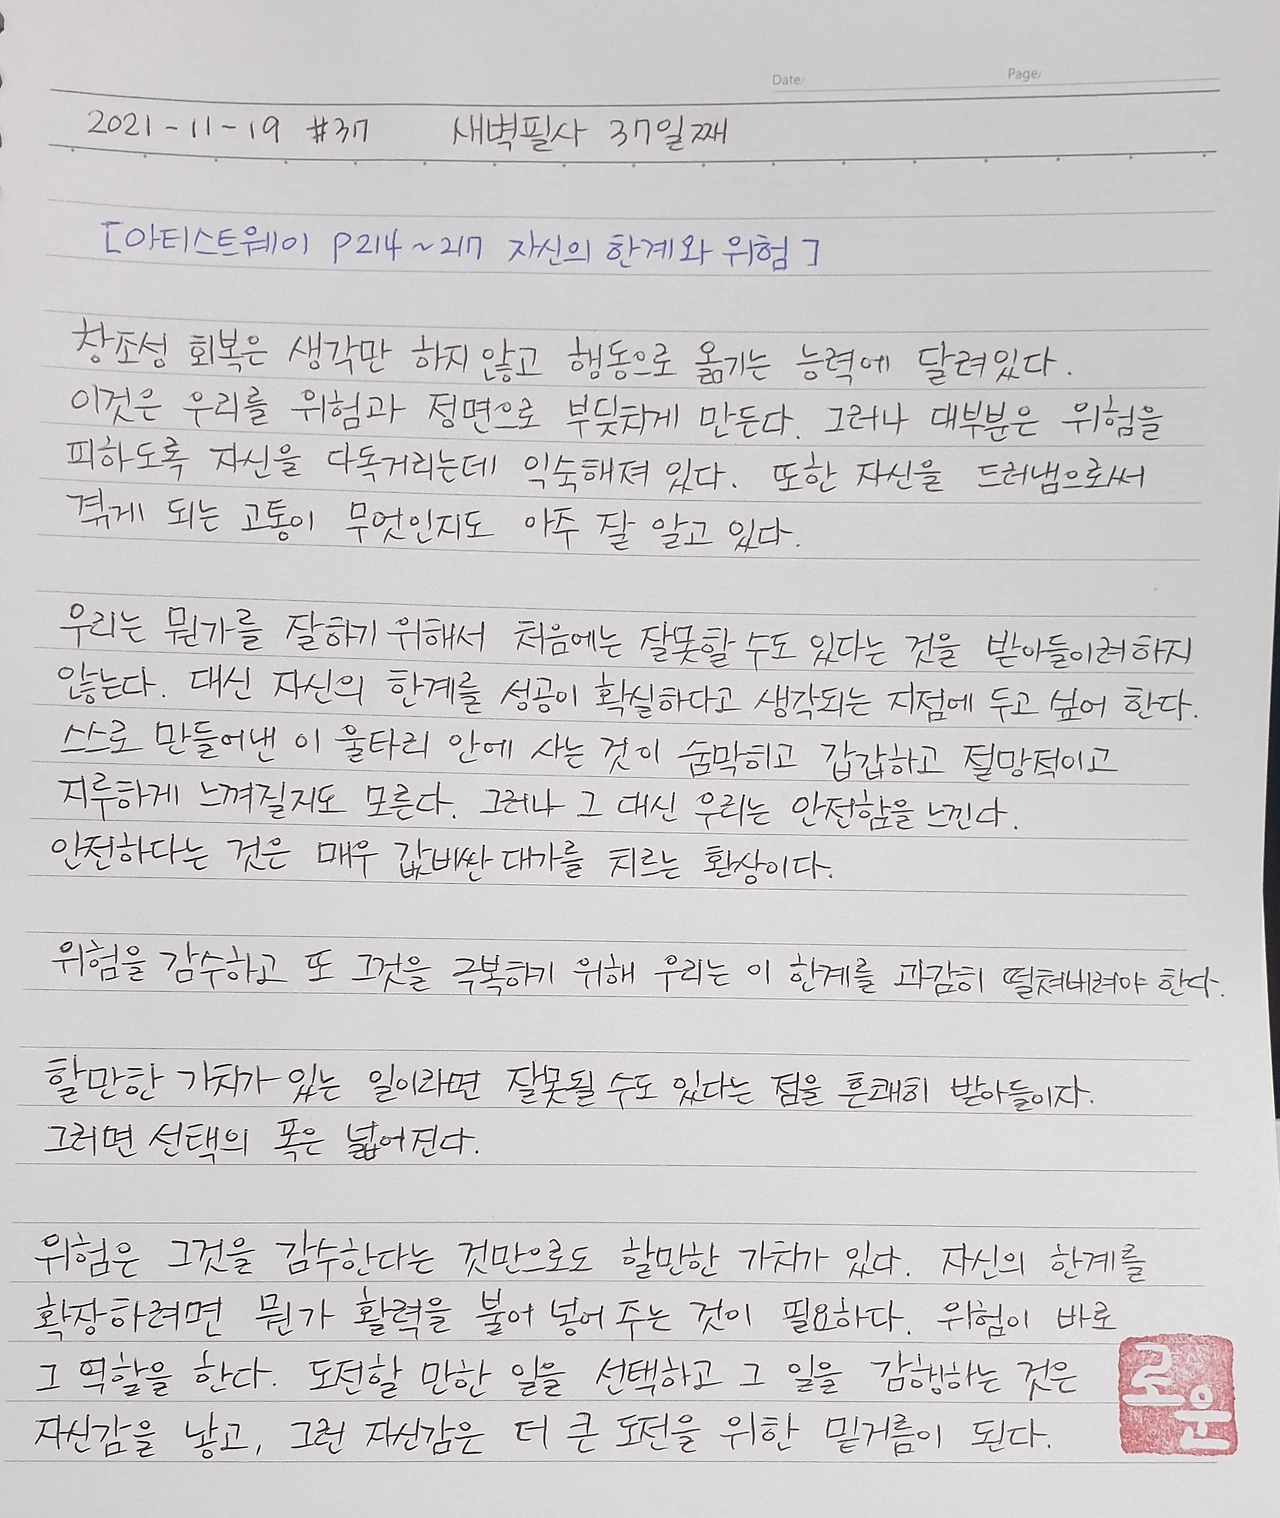 Date/
Page/
2021-11-19 #37 새벽필사 37일째
[아티스트웨이 P214~217 자신의 한계와 위험]
창조성 회복은 생각만 하지 않고 행동으로 옮기는 능력에 달려있다.
이것은 우리를 위험과 정면으로 부딪치게 만든다. 그러나 대부분은 위험을
피하도록 자신을 다독거리는데 익숙해져 있다. 또한 자신을 드러냄으로써
겪게 되는 고통이 무엇인지도 아주 잘 알고 있다.
우리는 뭔가를 잘하기 위해서 처음에는 잘못할 수도 있다는 것을 받아들이려하지
않는다. 대신 자신의 한계를 성공이 확실하다고 생각되는 지점에 두고 싶어 한다.
스스로 만들어낸 이 울타리 안에 사는 것이 숨막히고 갑갑하고 절망적이고
지루하게 느껴질지도 모른다. 그러나 그 대신 우리는 안전함을 느낀다.
안전하다는 것은 매우 값비싼 대가를 치르는 환상이다.
위험을 감수하고 또 그것을 극복하기 위해 우리는 이 한계를 과감히 떨쳐버려야 한다.
할만한 가치가 있는 일이라면 잘못될 수도 있다는 점을 흔쾌히 받아들이자.
그러면 선택의 폭은 넓어진다.
위험은 그것을 감수한다는 것만으로도 할만한 가치가 있다. 자신의 한계를
확장하려면 뭔가 활력을 불어 넣어 주는 것이 필요하다. 위험이 바로
그 역할을 한다. 도전할 만한 일을 선택하고 그 일을 감행하는 것은
자신감을 낳고, 그런 자신감은 더 큰 도전을 위한 밑거름이 된다.
로운